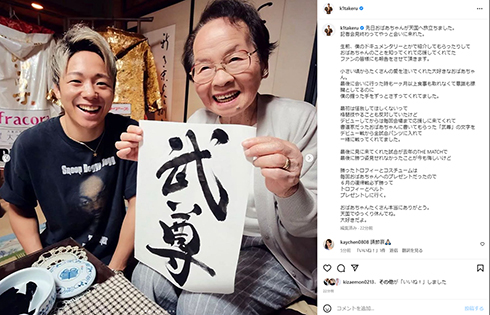 武尊
fracora
Snoop Doggy Dogg
k1takeru
k1takeru 先日おばあちゃんが天国へ旅立ちました。
記者会見終わってやっと会いに来れた。
生前、僕のドキュメンタリーとかで紹介してもらったりして
おばあちゃんのことを知ってくれて応援してくれてた
ファンの皆様にも報告をさせて頂きます。
小さい頃からたくさんの愛を注いでくれた大好きなおばあちゃ
ん。
最後に会いに行った時も一ヶ月以上食事も取れなくて意識も朦
朧としてるのに
僕の握った手をずっとさすってくれてました。
最初は怪我してほしくないって
格闘技やることも反対していたけど
デビューしてからは毎回会場まで応援しに来てくれて
書道家だったおばあちゃんに書いてもらった「武尊」の文字を
デビュー戦から全試合パンツに入れて
一緒に戦ってくれてました。
最後に見に来てくれた試合が去年のTHE MATCHで
最後に勝つ姿見せれなかったことが今も悔しいけど
勝ったトロフィーとコスチュームは
毎回おばあちゃんへのプレゼントだったので
6月の復帰戦必ず勝って
トロフィーとベルト
プレゼントしに行くね。
おばあちゃんたくさん本当にありがとう。
天国でゆっくり休んでね。
大好きだよ。
編集済み・22分前
kaychen0808 請節哀
5分前 「いいね！」1件 返信 翻訳を見る
kizaemon0213、その他が「いいね！」しました
22分前
コメントを追加...
投稿する